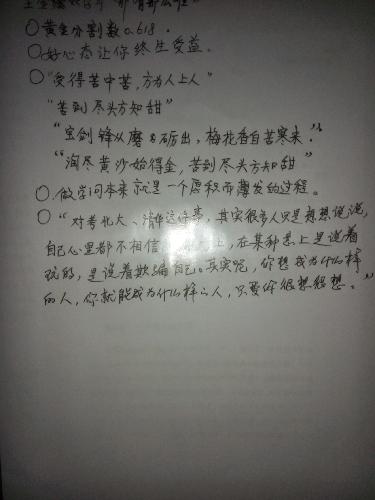 ○黄金分割数0.618.
○好心态让你终生受益。
○"受得苦中苦,方为人上人"
"苦到尽头方知甜"
"宝剑锋从磨砺出,梅花香自苦寒来."
"淘尽黄沙始得金,苦到尽头方知甜"
○.做学问本来就是一个厚积而薄发的过程。
○"对考北大、清华这件事,其实很多人只是想想说说,
自己心里都不相信 上,在某种意上是说着
玩的,是说着欺骗自己。其实呢,你想成为什么样
的人,你就能成为什么样的人,只要你很想很想。"